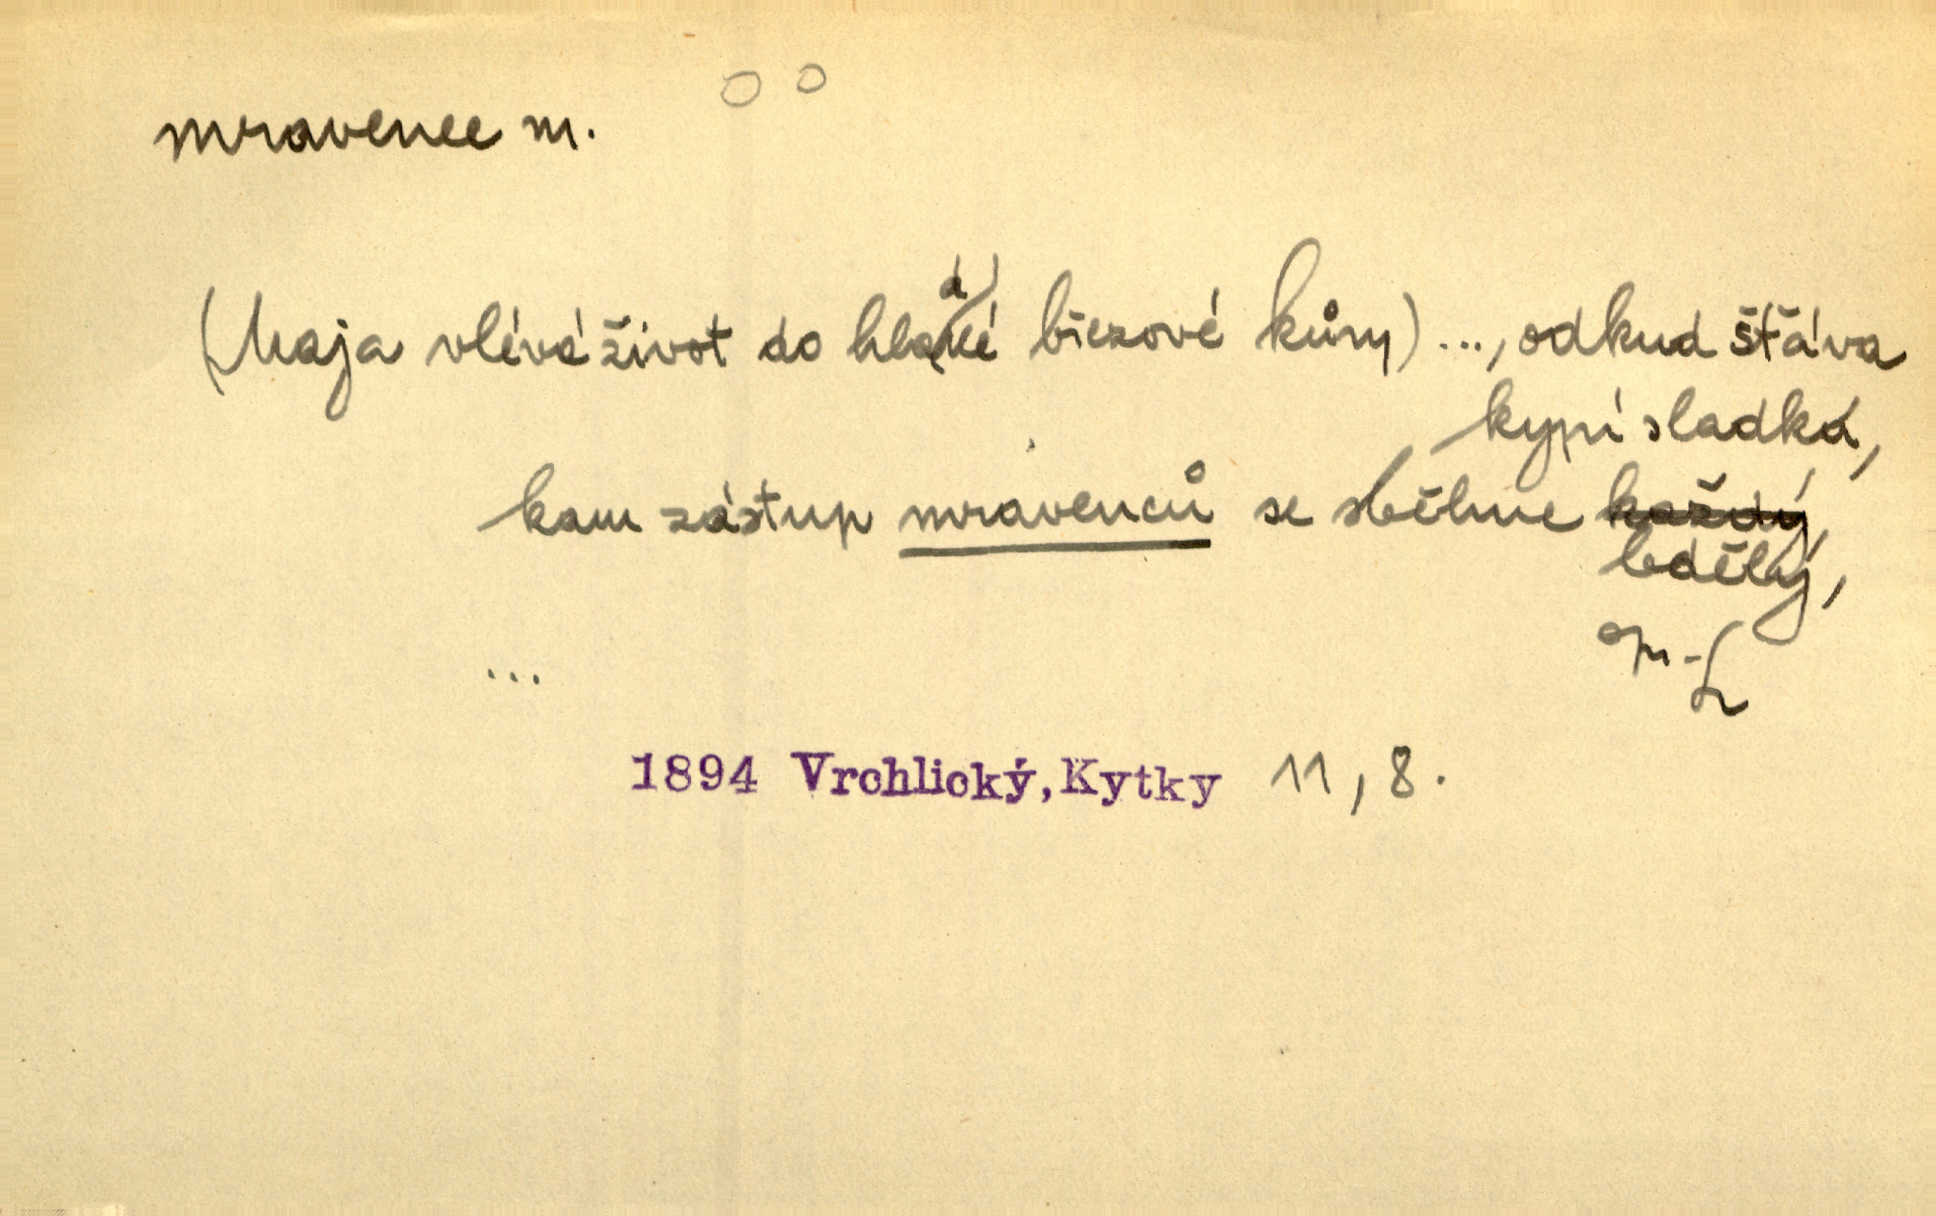 mravenec m.
(Maja vlévá život do hladké březové kůry) ..., odkud šťáva
kypí sladká,
kam zástup mravenců se sběhne každý,
bdělý,
...
1894 Vrchlický, Kytky 11, 8.